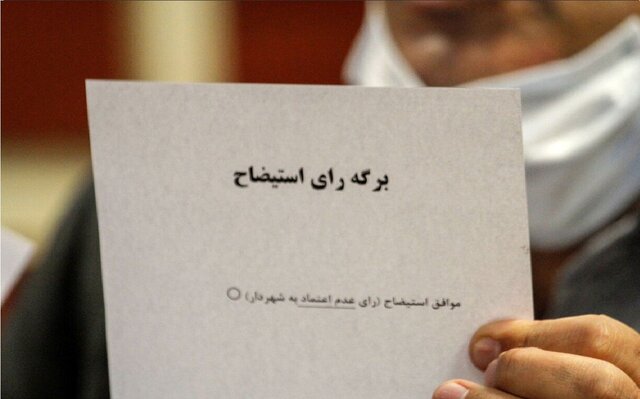 برگه رای استیضاح
موافق استیضاح (رای عدم اعتماد به شهردار)